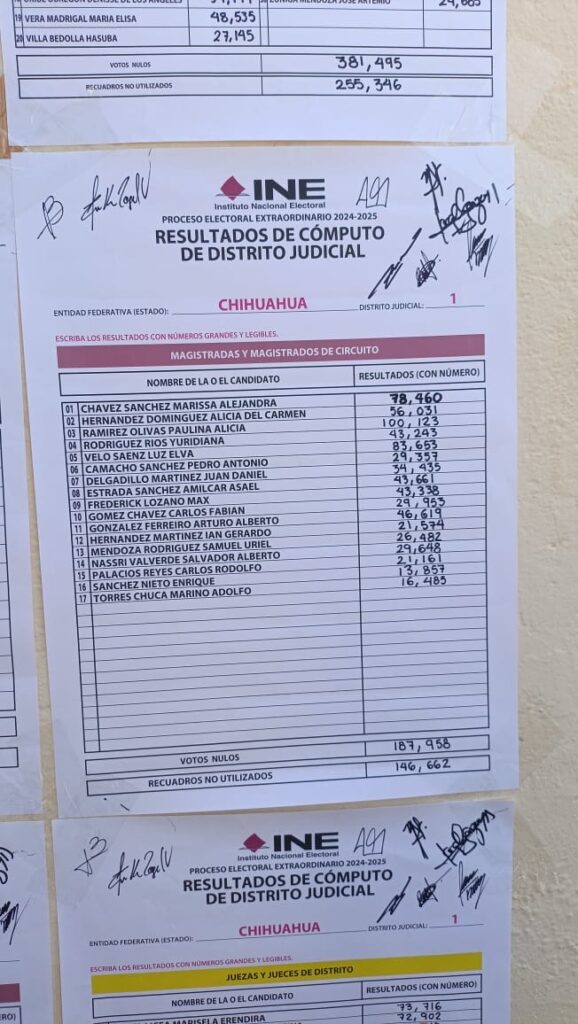 19 VERA MADRIGAL MARIA ELISA 48,535
20 VILLA BEDOLLA HASUBA 27,195
VOTOS NULOS 381,495
RECUADROS NO UTILIZADOS 255,346
INE
Instituto Nacional Electoral
PROCESO ELECTORAL EXTRAORDINARIO 2024-2025
RESULTADOS DE CÓMPUTO
DE DISTRITO JUDICIAL
ENTIDAD FEDERATIVA (ESTADO): CHIHUAHUA DISTRITO JUDICIAL: 1
ESCRIBA LOS RESULTADOS CON NÚMEROS GRANDES Y LEGIBLES.
MAGISTRADAS Y MAGISTRADOS DE CIRCUITO
NOMBRE DE LA O EL CANDIDATO RESULTADOS (CON NÚMERO)
01 CHAVEZ SANCHEZ MARISSA ALEJANDRA 78,460
02 HERNANDEZ DOMINGUEZ ALICIA DEL CARMEN 56,031
03 RAMIREZ OLIVAS PAULINA ALICIA 100,123
04 RODRIGUEZ RIOS YURIDIANA 43,243
05 VELO SAENZ LUZ ELVA 83,653
06 CAMACHO SANCHEZ PEDRO ANTONIO 29,357
07 DELGADILLO MARTINEZ JUAN DANIEL 34,435
08 ESTRADA SANCHEZ AMILCAR ASAEL 43,661
09 FREDERICK LOZANO MAX 43,338
10 GOMEZ CHAVEZ CARLOS FABIAN 29,953
11 GONZALEZ FERREIRO ARTURO ALBERTO 46,619
12 HERNANDEZ MARTINEZ IAN GERARDO 21,574
13 MENDOZA RODRIGUEZ SAMUEL URIEL 26,482
14 NASSRI VALVERDE SALVADOR ALBERTO 29,648
15 PALACIOS REYES CARLOS RODOLFO 21,161
16 SANCHEZ NIETO ENRIQUE 13,857
17 TORRES CHUCA MARINO ADOLFO 16,485
VOTOS NULOS 187,958
RECUADROS NO UTILIZADOS 146,662
INE
Instituto Nacional Electoral
PROCESO ELECTORAL EXTRAORDINARIO 2024-2025
RESULTADOS DE CÓMPUTO
DE DISTRITO JUDICIAL
ENTIDAD FEDERATIVA (ESTADO): CHIHUAHUA DISTRITO JUDICIAL: 1
ESCRIBA LOS RESULTADOS CON NÚMEROS GRANDES Y LEGIBLES.
JUEZAS Y JUECES DE DISTRITO
NOMBRE DE LA O EL CANDIDATO RESULTADOS (CON NÚMERO)
MARISELA ERENDIRA 73,716
72,902